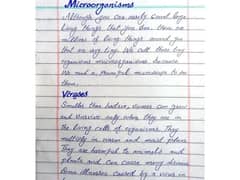 Microorganisms
Although you can easily count large
living things that you see. there are
millions of living things around you
that are very tiny. We call these tiny
organisms microorganisms because
We need a powerful microscope to see
them.
Viruses
Smaller than bacteria, viruses can grow
and survive only when they are in
the living cells of organisms. They
multiply in warm and moist places.
They are harmful to animals and
plants and can cause many diseases
Some illnesses caused by a virus in